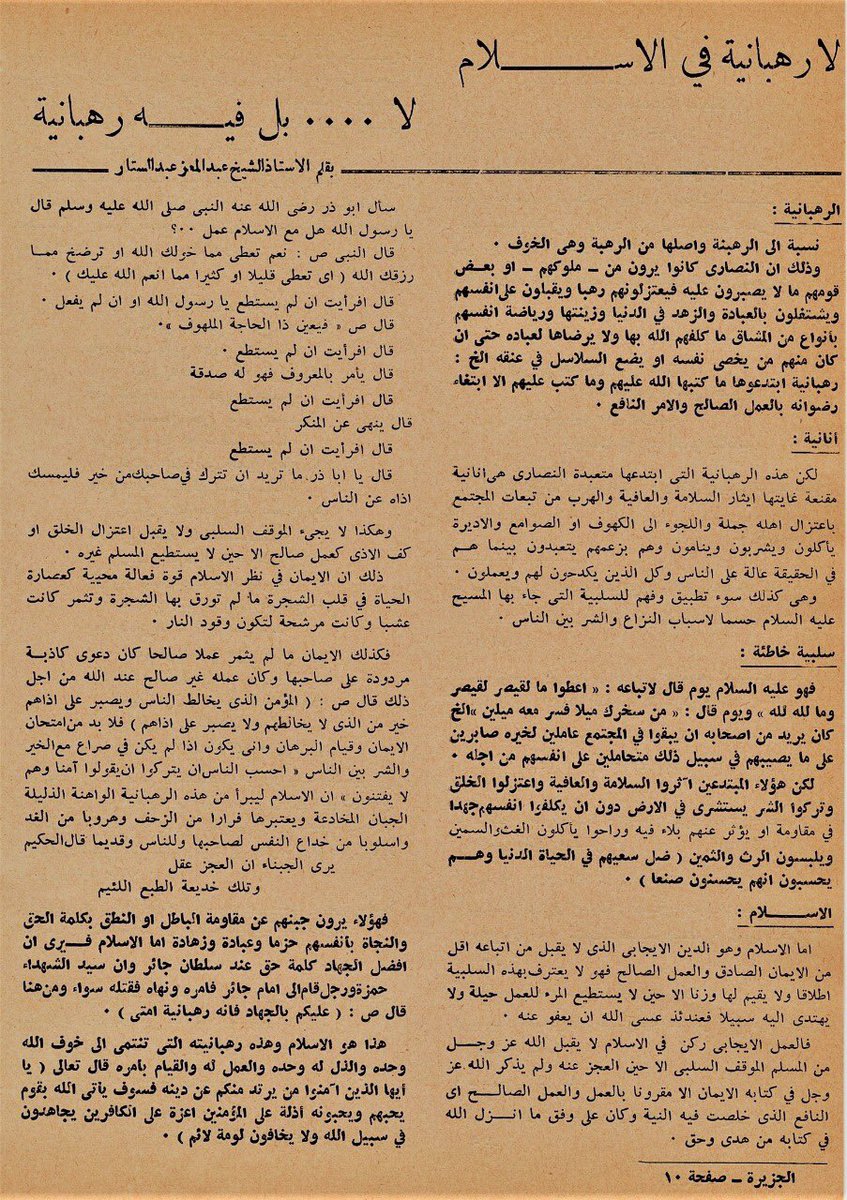 لا رهبانية في الاسـلام
لا .... بل فيـه رهبانية
بقلم الاستاذ الشيخ عبدالمعز عبدالستار
الرهبانية :
نسبة الى الرهبنة واصلها من الرهبة وهى الخوف .
وذلك ان النصارى كانوا يرون من ـ ملوكهم ـ او بعض
قومهم ما لا يصبرون عليه فيعتزلونهم رهبا ويقبلون على انفسهم
ويشتغلون بالعبادة والزهد في الدنيا وزينتها ورياضة انفسهم
بأنواع من المشاق ما كلفهم الله بها ولا يرضاها لعباده حتى ان
كان منهم من يخصى نفسه او يضع السلاسل في عنقه الخ :
رهبانية ابتدعوها ما كتبها الله عليهم وما كتب عليهم الا ابتغاء
رضوانه بالعمل الصالح والامر النافع .
أنانية :
لكن هذه الرهبانية التى ابتدعها متعبدة النصارى هى انانية
مقنعة غايتها ايثار السلامة والعافية والهرب من تبعات المجتمع
باعتزال اهله جملة واللجوء الى الكهوف او الصوامع والاديرة
يأكلون ويشربون وينامون وهم بزعمهم يتعبدون بينما هـم
في الحقيقة عالة على الناس وكل الذين يكدحون لهم ويعملون .
وهى كذلك سوء تطبيق وفهم للسلبية التى جاء بها المسيح
عليه السلام حسما لاسباب النزاع والشر بين الناس .
سلبية خاطئة :
فهو عليه السلام يوم قال لاتباعه : « اعطوا ما لقيصر لقيصر
وما لله لله » ويوم قال : « من سخرك ميلا فسر معه ميلين »الخ
كان يريد من اصحابه ان يبقوا في المجتمع عاملين لخيره صابرين
على ما يصيبهم في سبيل ذلك متحاملين على انفسهم من اجله .
لكن هؤلاء المبتدعين آثروا السلامة والعافية واعتزلوا الخلق
وتركوا الشر يستشرى في الارض دون ان يكلفوا انفسهم جهدا
في مقاومة او يؤثر عنهم بلاء فيه وراحوا يأكلون الغث والسمين
ويلبسون الرث والثمين ( ضل سعيهم في الحياة الدنيا وهـم
يحسبون انهم يحسنون صنعا ) .
الاسـلام :
اما الاسلام وهو الدين الايجابى الذى لا يقبل من اتباعه اقل
من الايمان الصادق والعمل الصالح فهو لا يعترف بهذه السلبية
اطلاقا ولا يقيم لها وزنا الا حين لا يستطيع المرء للعمل حيلة ولا
يهتدى اليه سبيلا فعندئذ عسى الله ان يعفو عنه .
فالعمل الايجابى ركن في الاسلام لا يقبل الله عز وجـل
من المسلم الموقف السلبى الا حين العجز عنه ولم يذكر الله عز
وجل في كتابه الايمان الا مقرونا بالعمل والعمل الصالـح اى
النافع الذى خلصت فيه النية وكان على وفق ما انـزل الله
في كتابه من هدى وحق .
الجزيرة ـ صفحة ١٠
سأل ابو ذر رضى الله عنه النبى صلى الله عليه وسلم قال
يا رسول الله هل مع الاسلام عمل ..؟
قال النبى ص : نعم تعطى مما خولك الله او ترضخ ممـا
رزقك الله ( اى تعطى قليلا او كثيرا مما انعم الله عليك ) .
قال افرأيت ان لم يستطع يا رسول الله او ان لم يفعل .
قال ص « فيعين ذا الحاجة الملهوف ».
قال افرأيت ان لم يستطع .
قال يأمر بالمعروف فهو له صدقة
قال افرأيت ان لم يستطع
قال ينهى عن المنكر
قال افرأيت ان لم يستطع
قال يا ابا ذر ما تريد ان تترك في صاحبك من خير فليمسك
اذاه عن الناس .
وهكذا لا يجىء الموقف السلبى ولا يقبل اعتزال الخلق او
كف الاذى كعمل صالح الا حين لا يستطيع المسلم غيره .
ذلك ان الايمان في نظر الاسلام قوة فعالة محيية كعصارة
الحياة في قلب الشجرة ما لم تورق بها الشجرة وتثمر كانت
عشبا وكانت مرشحة لتكون وقود النار .
فكذلك الايمان ما لم يثمر عملا صالحا كان دعوى كاذبـة
مردودة على صاحبها وكان عمله غير صالح عند الله من اجل
ذلك قال ص : ( المؤمن الذى يخالط الناس ويصبر على اذاهم
خير من الذى لا يخالطهم ولا يصبر على اذاهم ) فلا بد من امتحان
الايمان وقيام البرهان وانى يكون اذا لم يكن في صراع مع الخير
والشر بين الناس « احسب الناس ان يتركوا ان يقولوا آمنا وهم
لا يفتنون » ان الاسلام ليبرأ من هذه الرهبانية الواهنة الذليلة
الجبان المخادعة ويعتبرها فرارا من الزحف وهروبا من الغد
واسلوبا من خداع النفس لصاحبها وللناس وقديما قال الحكيم
يرى الجبناء ان العجز عقل
وتلك خديعة الطبع اللئيم
فهؤلاء يرون جبنهم عن مقاومة الباطل او النطق بكلمة الحق
والنجاة بأنفسهم حزما وعبادة وزهادة اما الاسلام فـيرى ان
افضل الجهاد كلمة حق عند سلطان جائر وان سيد الشهداء
حمزة ورجل قام الى امام جائر فامره ونهاه فقتله سواء ومن هنا
قال ص : ( عليكم بالجهاد فانه رهبانية امتى ) .
هذا هو الاسلام وهذه رهبانيته التى تنتمى الى خوف الله
وحده والذل له وحده والعمل له والقيام بأمره قال تعالى ( يا
أيها الذين آمنوا من يرتد منكم عن دينه فسوف يأتى الله بقوم
يحبهم ويحبونه أذلة على المؤمنين اعزة على الكافرين يجاهدون
في سبيل الله ولا يخافون لومة لائم ) .